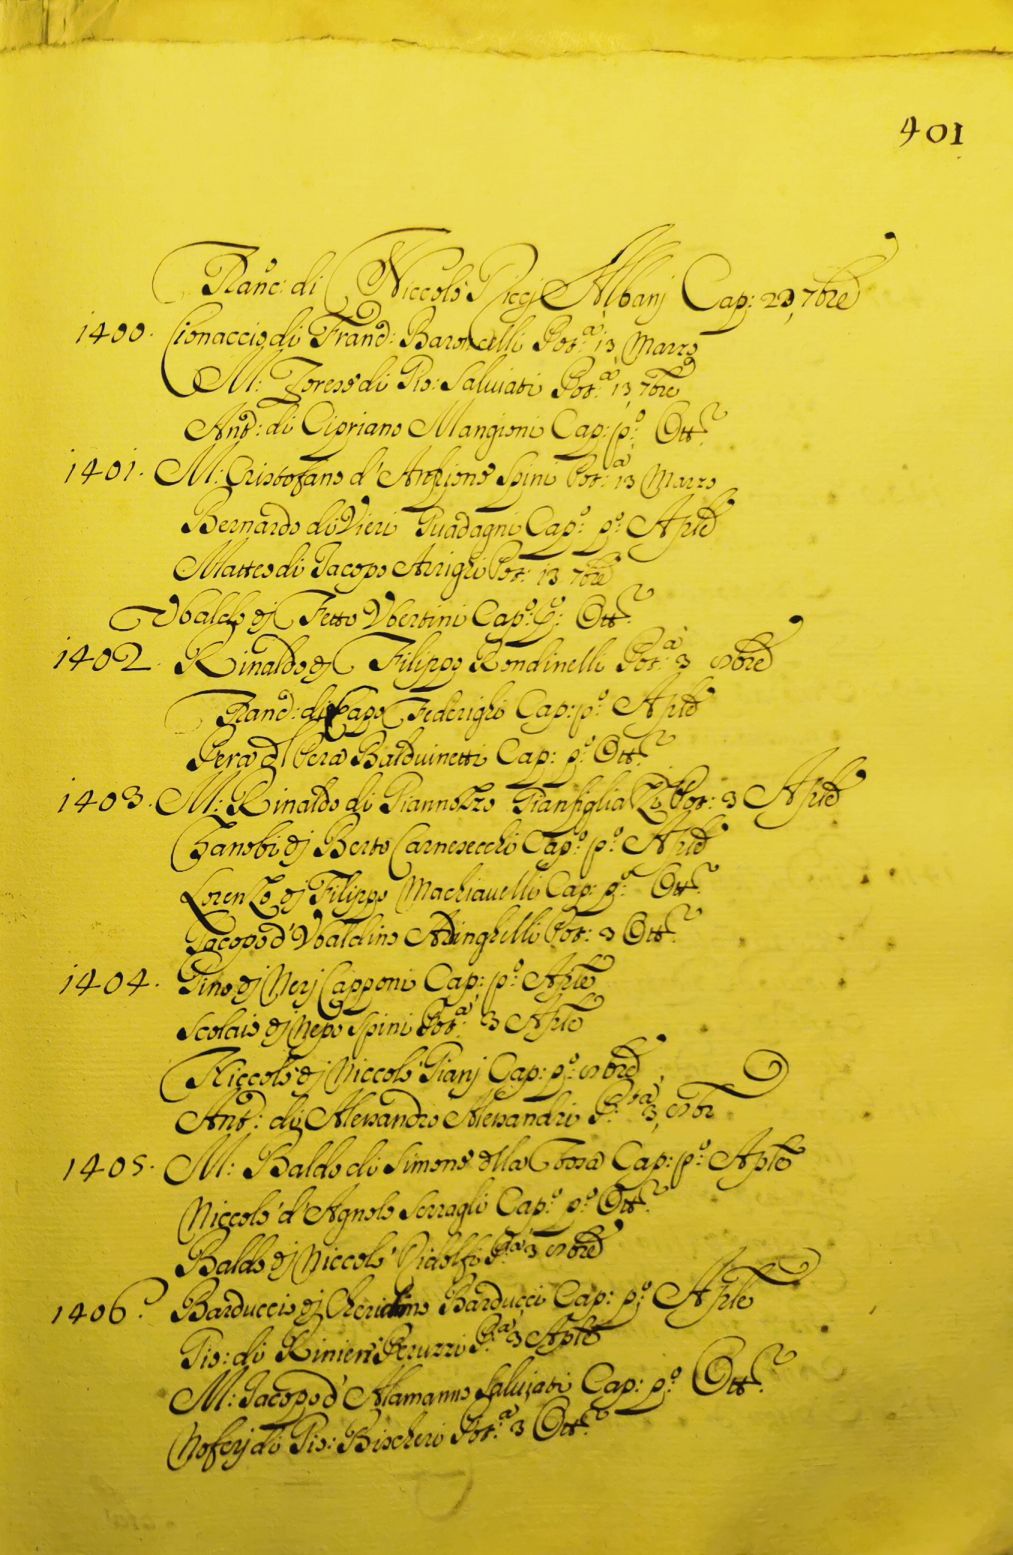 401
Franc: di Niccolò Riccj Albanj Cap: 23, 7bre
1400. Cionaccio di Franc: Baroncelli Pot:a 13 Marzo
M: Forese di Gio: Salviati Pot:a 13, 7bre
Ant: di Cipriano Mangioni Cap: p:o Ott:e
1401. M: Cristofano d' Anfrione Spini Pot:a 13 Marzo
Bernardo di Vieri Guadagni Cap:o p:o Aple
Matteo di Jacopo Arrighi Pot: 13 7bre
Vbaldo dj Fetto Vbertini Cap:o p:o Ott:e
1402. Rinaldo dj Filippo Rondinelli Pot:a 3 9bre
Franc: di Lapo Federighi Cap: p:o Aple
Pera d Pera Balduinetti Cap: p:o Ott:e
1403. M: Rinaldo di Giannozzo Gianfigliazi Pot: 3 Aple
Zanobi dj Berto Carnesecchi Cap:o p:o Aple
Lorenzo dj Filippo Machiauelli Cap: p:o Ott:e
Jacopo d' Vbaldino Aringhelli Pot: 3 Ott:e
1404. Gino dj Nerj Capponi Cap: p:o Aple
Scolaio dj Nepo Spini Pot:a 3 Aple
Niccolò dj Niccolò Gianj Cap: p:o 9bre
Ant: dj Alessandro Alessandri P:a 3, 9br
1405. M: Baldo di Simone della Tosa Cap: p:o Aple
Niccolò d' Agnolo Serragli Cap:o p:o Ott:e
Baldo dj Niccolò Ridolfi P:a 3 9bre
1406. Barduccio dj Cherichino Barducci Cap: p:o Aple
Gio: di Rinieri Peruzzi P:a 3 Aple
M: Jacopo d' Alamanno Salviati Cap: p:o Ott:e
Noferj di Gio: Bischeri Pot:a 3 Ott:e